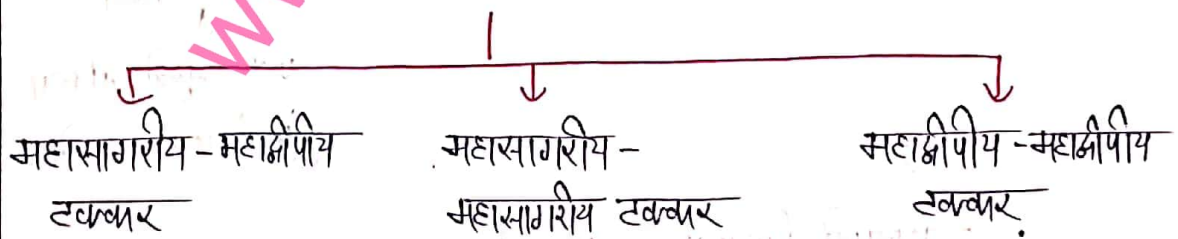 महासागरीय - महाद्वीपीय
टक्कर
महासागरीय -
महासागरीय टक्कर
महाद्वीपीय - महाद्वीपीय
टक्कर